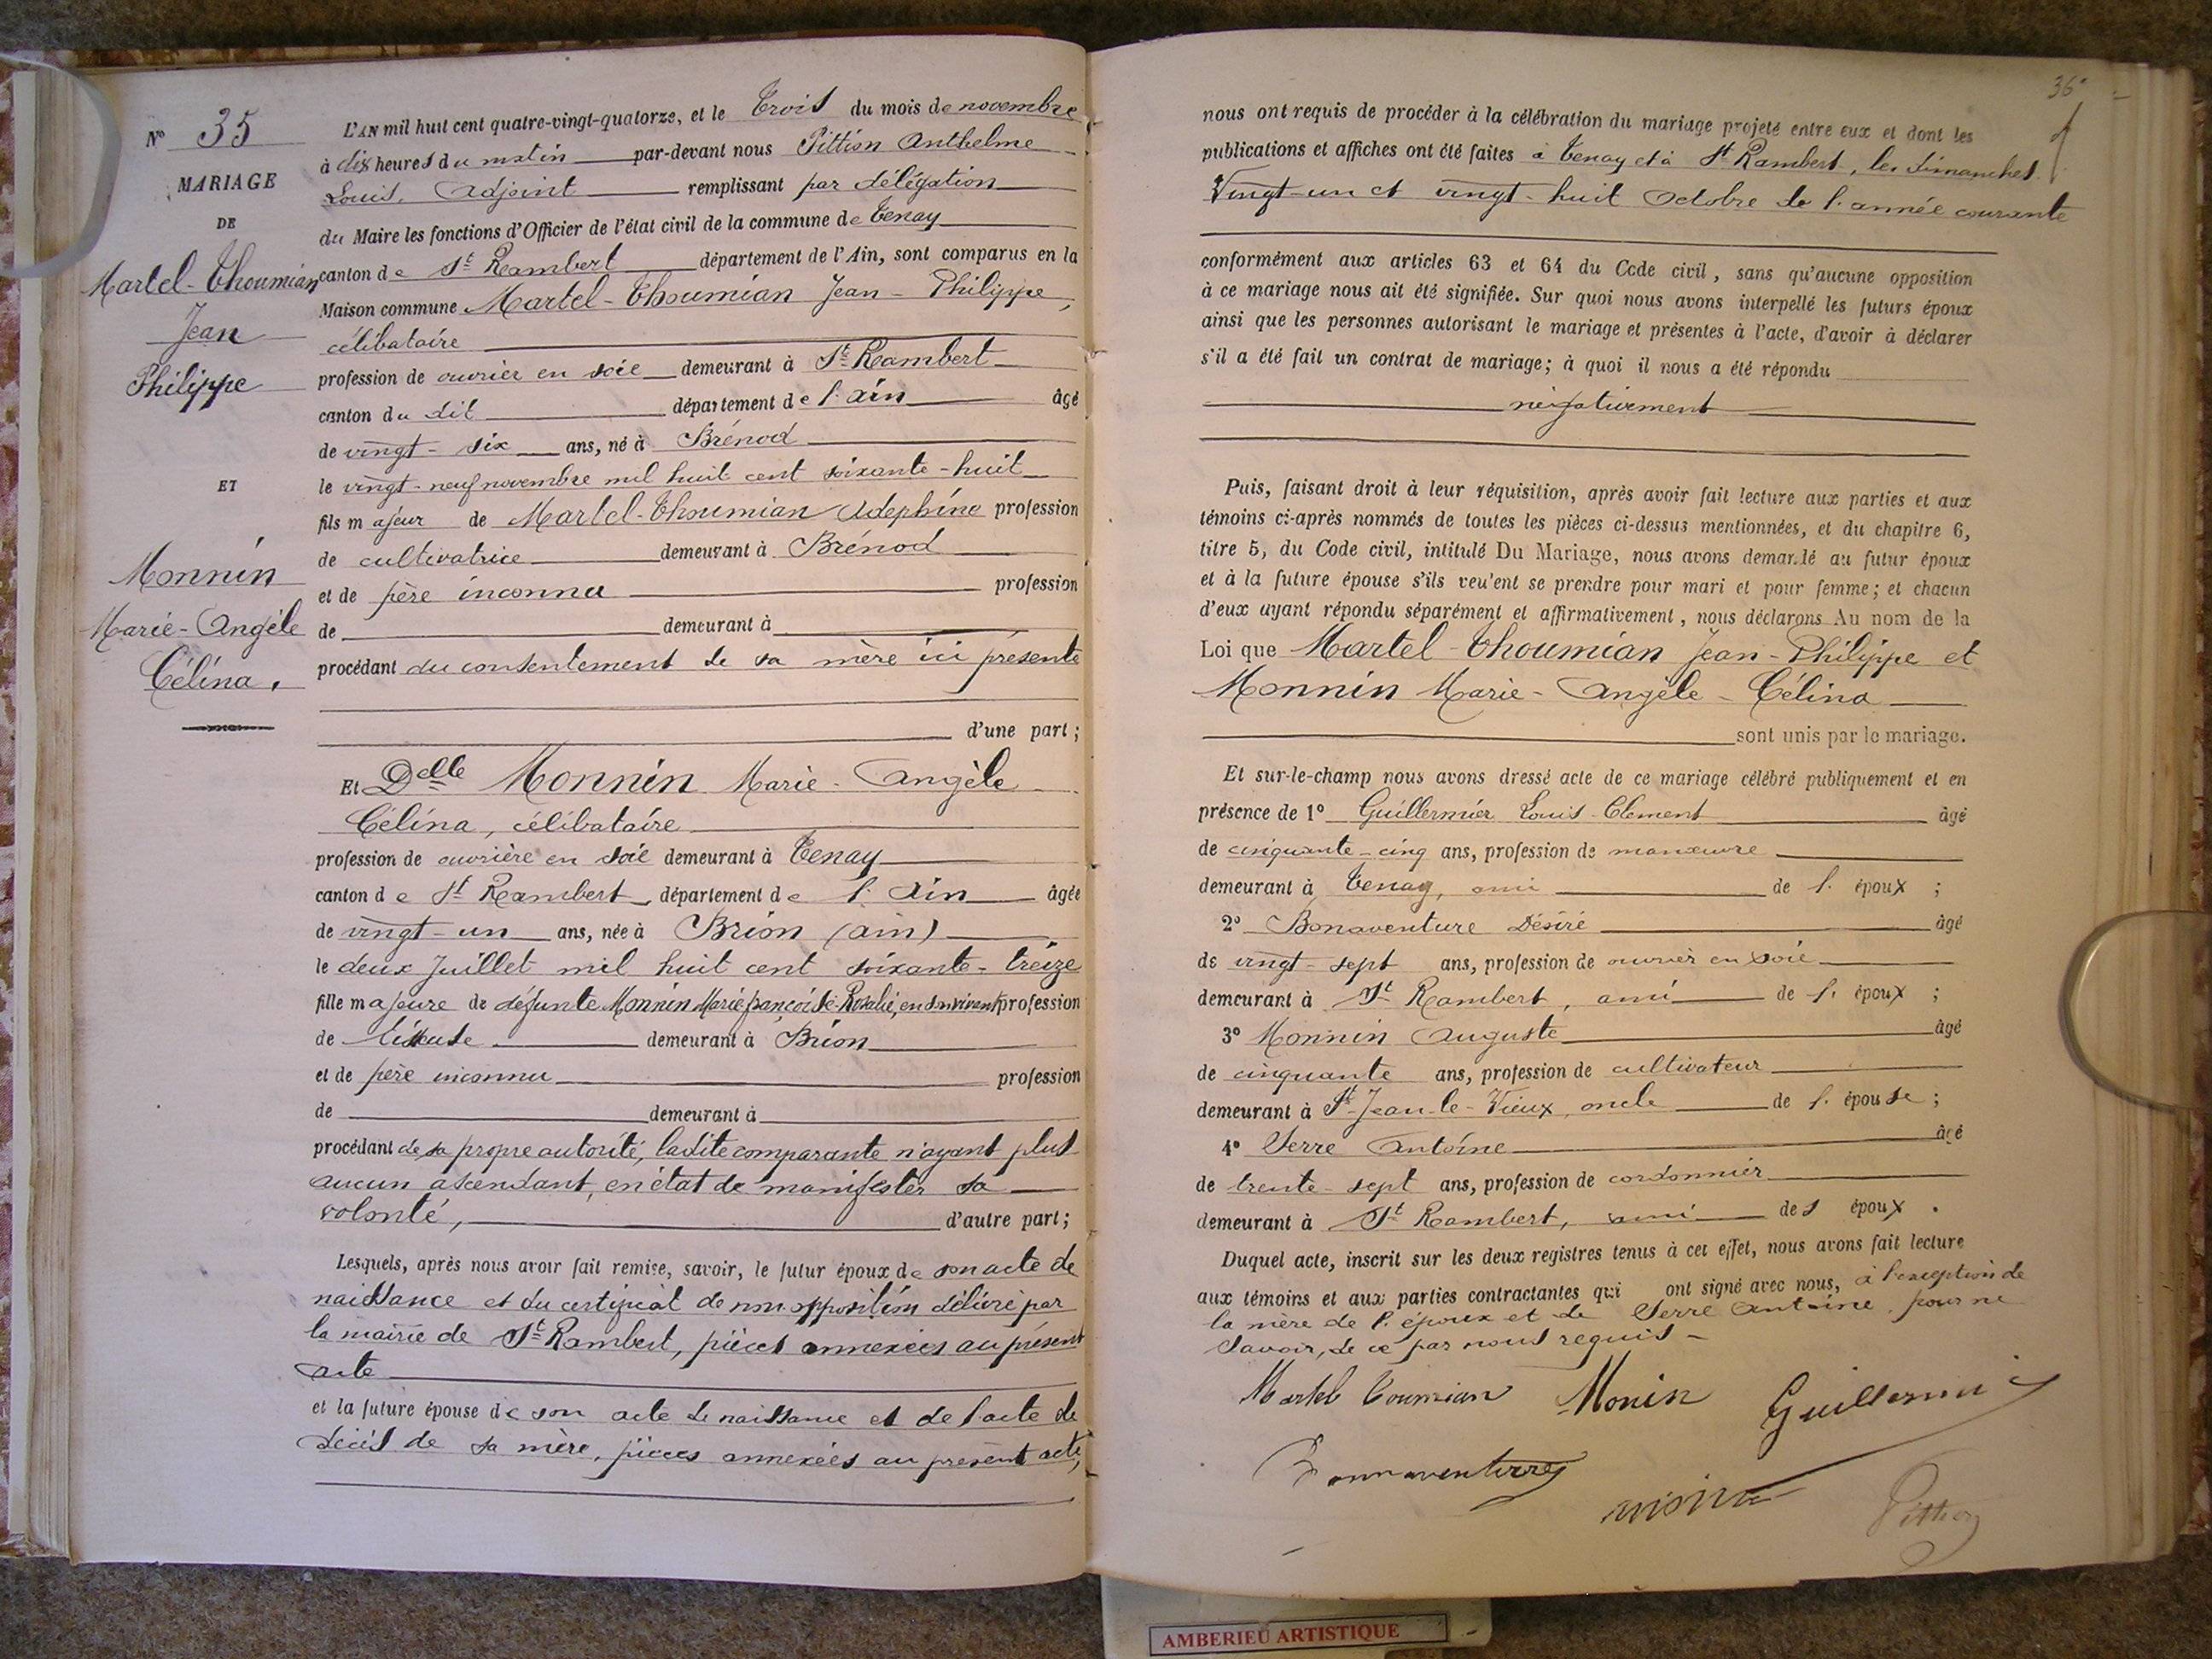 N° 35
MARIAGE
DE
Martel-Thoumian
Jean
Philippe
ET
Monnin
Marie-Angèle
Célina.
L'AN mil huit cent quatre-vingt-quatorze, et le Trois du mois de novembre
à dix heures du matin par-devant nous Pittion Anthelme
Louis, Adjoint remplissant par délégation
du Maire les fonctions d'Officier de l'état civil de la commune de Tenay
canton de St Rambert département de l'Ain, sont comparus en la
Maison commune Martel-Thoumian Jean-Philippe,
célibataire
profession de ouvrier en soie demeurant à St Rambert
canton du dit département de l'ain âgé
de vingt-six ans, né à Brénod
le vingt-neuf novembre mil huit cent soixante-huit
fils majeur de Martel-Thoumian Adephine profession
de cultivatrice demeurant à Brénod
et de père inconnu profession
de demeurant à
procédant du consentement de sa mère ici présente
d'une part;
Et Delle Monnin Marie-Angèle
Célina, célibataire
profession de ouvrière en soie demeurant à Tenay
canton de St Rambert département de l'Ain âgée
de vingt-un ans, née à Brion (ain)
le deux Juillet mil huit cent soixante-treize
fille majeure de défunte Monnin Marie françoise-Rosalie, en son vivant profession
de tisseuse demeurant à Brion
et de père inconnu profession
de demeurant à
procédant de sa propre autorité, ladite comparante n'ayant plus
aucun ascendant, en état de manifester sa
volonté, d'autre part;
Lesquels, après nous avoir fait remise, savoir, le futur époux de son acte de
naissance et du certificat de non opposition délivré par
la mairie de St Rambert, pièces annexées au présent
acte
et la future épouse de son acte de naissance et de l'acte de
décès de sa mère, pièces annexées au présent acte,
36
nous ont requis de procéder à la célébration du mariage projeté entre eux et dont les
publications et affiches ont été faites à Tenay et à St Rambert, les dimanches
Vingt-un et vingt-huit Octobre de l'année courante
conformément aux articles 63 et 64 du Code civil, sans qu'aucune opposition
à ce mariage nous ait été signifiée. Sur quoi nous avons interpellé les futurs époux
ainsi que les personnes autorisant le mariage et présentes à l'acte, d'avoir à déclarer
s'il a été fait un contrat de mariage; à quoi il nous a été répondu
négativement
Puis, faisant droit à leur réquisition, après avoir fait lecture aux parties et aux
témoins ci-après nommés de toutes les pièces ci-dessus mentionnées, et du chapitre 6,
titre 5, du Code civil, intitulé Du Mariage, nous avons demandé au futur époux
et à la future épouse s'ils veulent se prendre pour mari et pour femme; et chacun
d'eux ayant répondu séparément et affirmativement, nous déclarons Au nom de la
Loi que Martel-Thoumian Jean-Philippe et
Monnin Marie-Angèle-Célina
sont unis par le mariage.
Et sur-le-champ nous avons dressé acte de ce mariage célébré publiquement et en
présence de 1° Guillermier Louis-Clement âgé
de cinquante-cinq ans, profession de manœuvre
demeurant à Tenay, ami de l'époux;
2° Bonaventure Désiré âgé
de vingt-sept ans, profession de ouvrier en soie
demeurant à St Rambert, ami de l'époux;
3° Monnin Auguste âgé
de cinquante ans, profession de cultivateur
demeurant à St-Jean-le-Vieux, oncle de l'épouse;
4° Serre Antoine âgé
de trente-sept ans, profession de cordonnier
demeurant à St Rambert, ami des époux.
Duquel acte, inscrit sur les deux registres tenus à cet effet, nous avons fait lecture
aux témoins et aux parties contractantes qui ont signé avec nous, à l'exception de
la mère de l'époux et de Serre Antoine, pour ne
Savoir, de ce par nous requis-
Martel Toumian Monin Guillermi
Bonnaventure
monin Pittion
AMBERIEU ARTISTIQUE